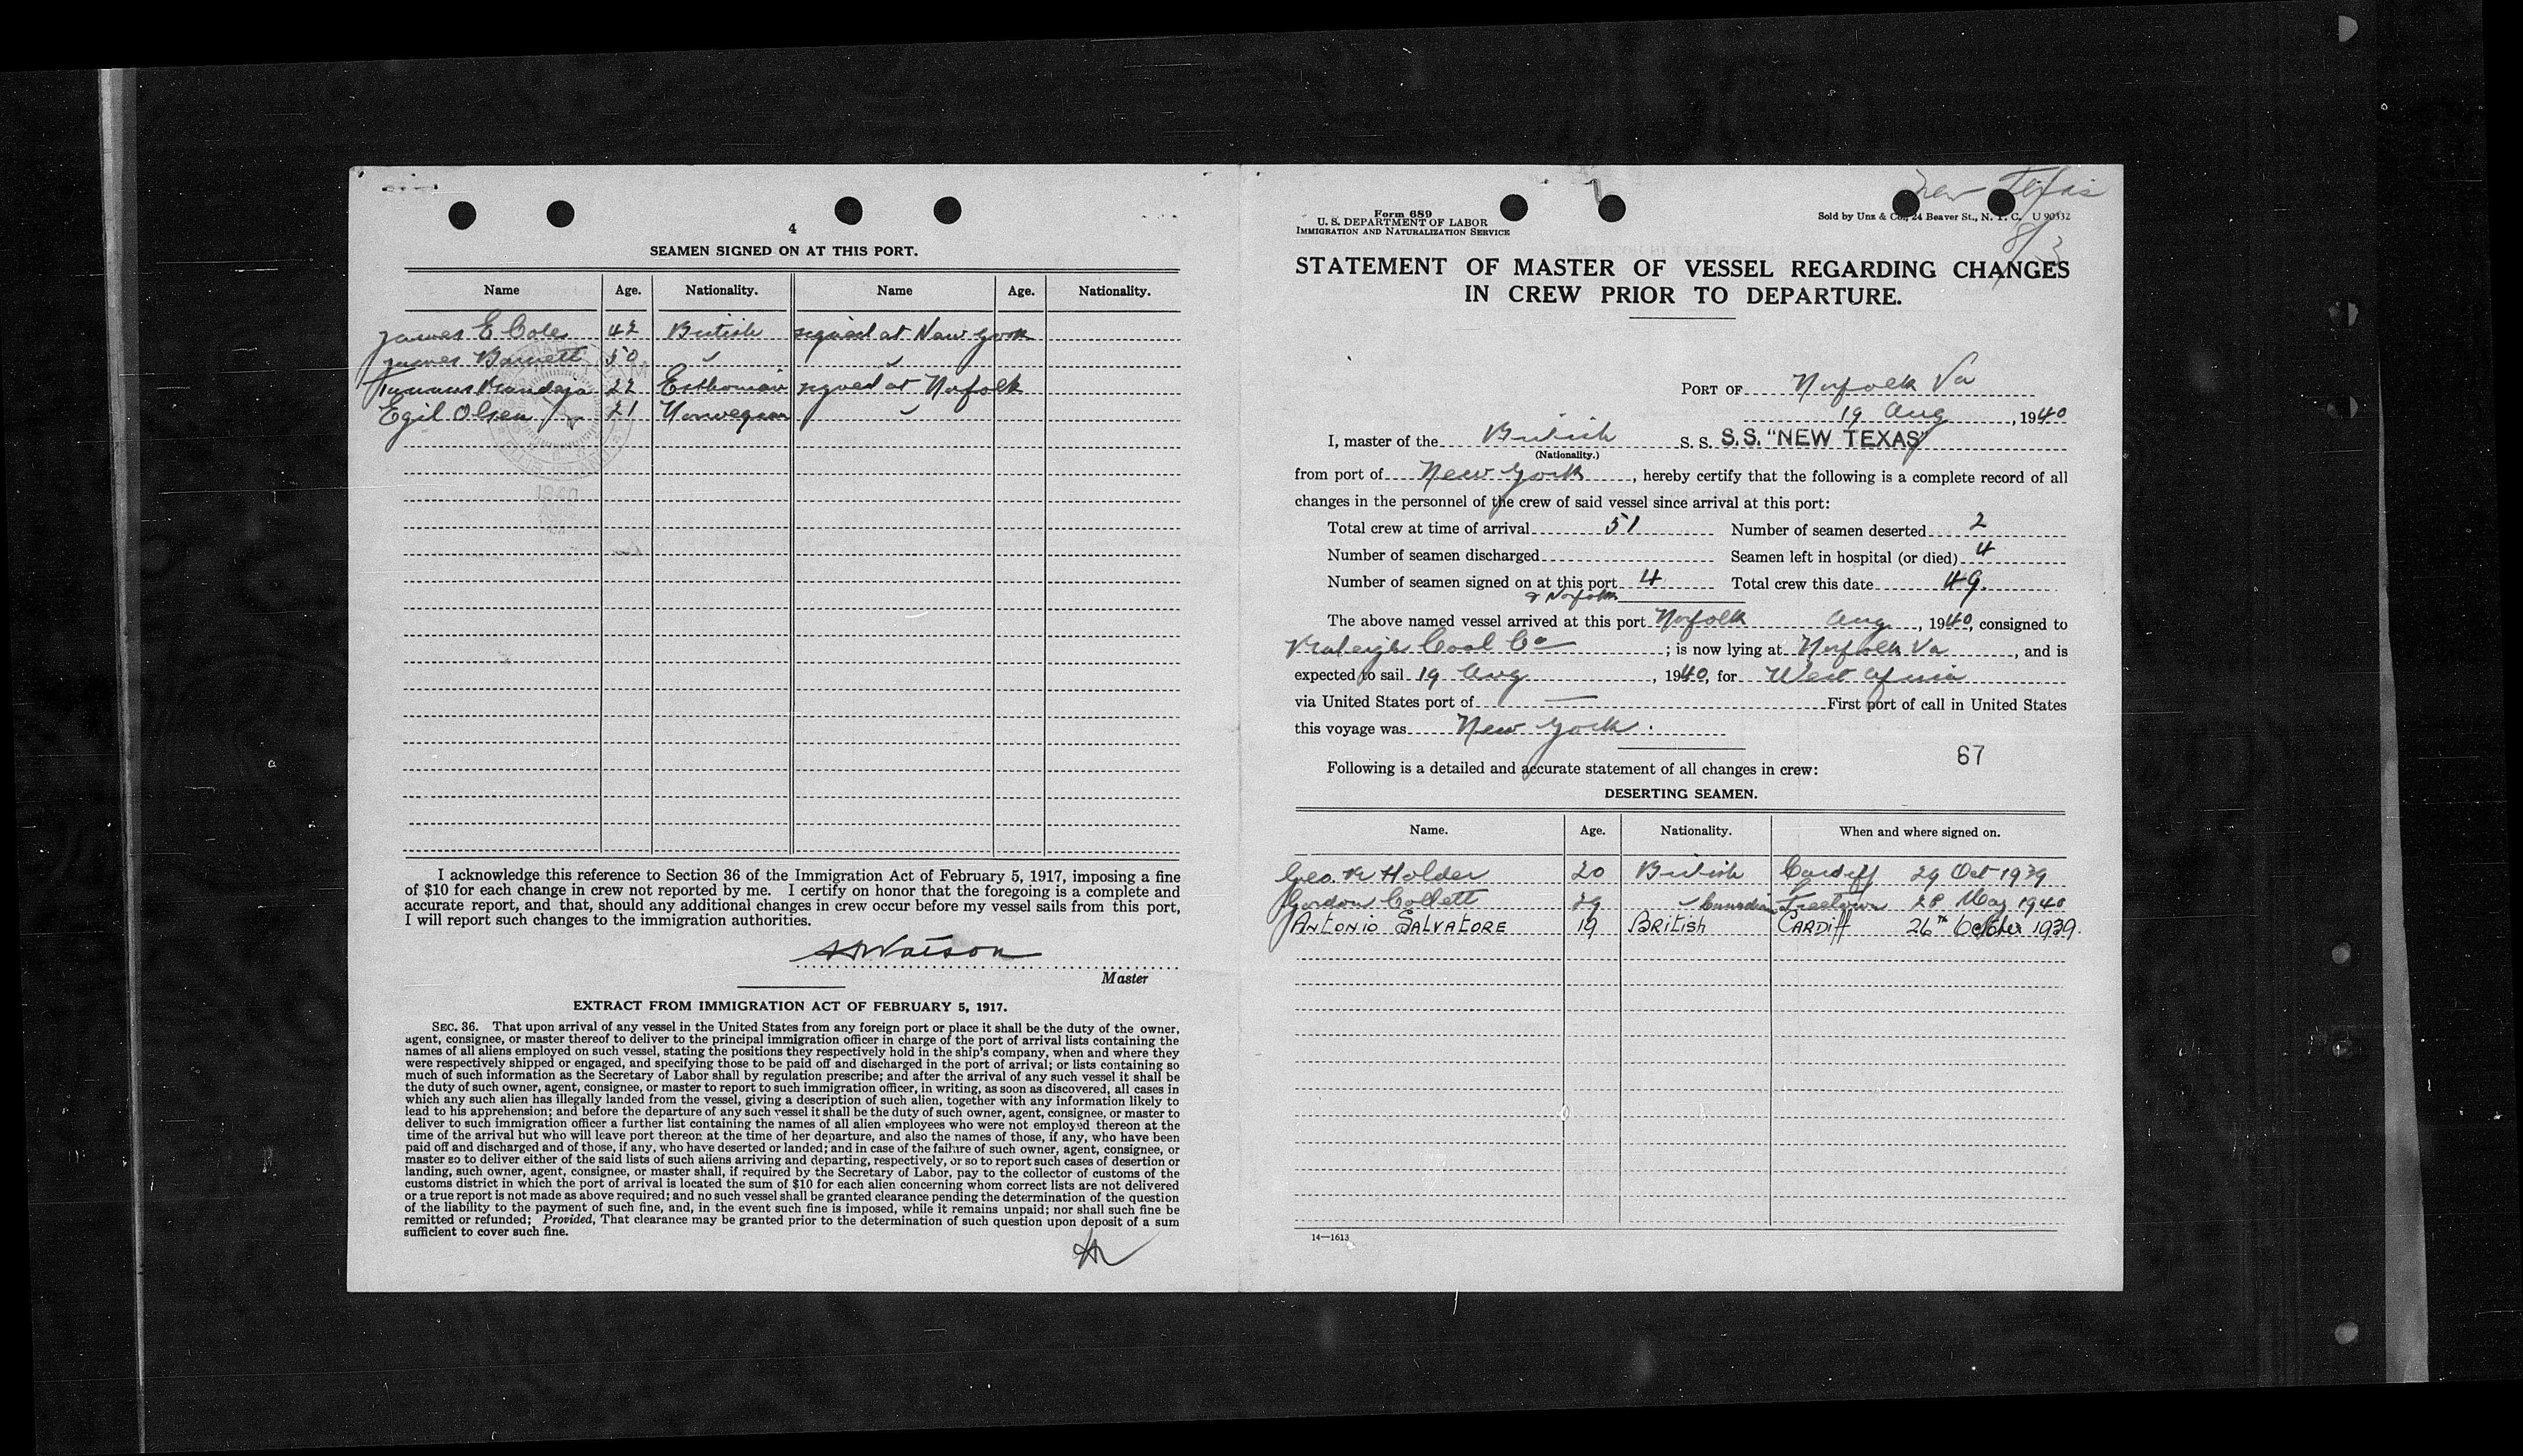 4
SEAMEN SIGNED ON AT THIS PORT.
Name Age. Nationality. Name Age. Nationality.
James E Cole 42 British signed at New York
James Barnett 50 " "
22 Esthonian signed at Norfolk
Egil Olsen 21 Norwegian "
1940
I acknowledge this reference to Section 36 of the Immigration Act of February 5, 1917, imposing a fine
of $10 for each change in crew not reported by me. I certify on honor that the foregoing is a complete and
accurate report, and that, should any additional changes in crew occur before my vessel sails from this port,
I will report such changes to the immigration authorities.
Watson
Master
EXTRACT FROM IMMIGRATION ACT OF FEBRUARY 5, 1917.
SEC. 36. That upon arrival of any vessel in the United States from any foreign port or place it shall be the duty of the owner,
agent, consignee, or master thereof to deliver to the principal immigration officer in charge of the port of arrival lists containing the
names of all aliens employed on such vessel, stating the positions they respectively hold in the ship's company, when and where they
were respectively shipped or engaged, and specifying those to be paid off and discharged in the port of arrival; or lists containing so
much of such information as the Secretary of Labor shall by regulation prescribe; and after the arrival of any such vessel it shall be
the duty of such owner, agent, consignee, or master to report to such immigration officer, in writing, as soon as discovered, all cases in
which any such alien has illegally landed from the vessel, giving a description of such alien, together with any information likely to
lead to his apprehension; and before the departure of any such vessel it shall be the duty of such owner, agent, consignee, or master to
deliver to such immigration officer a further list containing the names of all alien employees who were not employed thereon at the
time of the arrival but who will leave port thereon at the time of her departure, and also the names of those, if any, who have been
paid off and discharged and of those, if any, who have deserted or landed; and in case of the failure of such owner, agent, consignee, or
master so to deliver either of the said lists of such aliens arriving and departing, respectively, or so to report such cases of desertion or
landing, such owner, agent, consignee, or master shall, if required by the Secretary of Labor, pay to the collector of customs of the
customs district in which the port of arrival is located the sum of $10 for each alien concerning whom correct lists are not delivered
or a true report is not made as above required; and no such vessel shall be granted clearance pending the determination of the question
of the liability to the payment of such fine, and, in the event such fine is imposed, while it remains unpaid; nor shall such fine be
remitted or refunded; Provided, That clearance may be granted prior to the determination of such question upon deposit of a sum
sufficient to cover such fine.
New Texas
Form 689
U. S. DEPARTMENT OF LABOR
IMMIGRATION AND NATURALIZATION SERVICE
Sold by Unz & Co., 24 Beaver St., N. Y. C. U 90332
STATEMENT OF MASTER OF VESSEL REGARDING CHANGES
IN CREW PRIOR TO DEPARTURE.
PORT OF Norfolk Va
19 Aug, 1940
I, master of the British S. S. S.S. "NEW TEXAS"
(Nationality.)
from port of New York, hereby certify that the following is a complete record of all
changes in the personnel of the crew of said vessel since arrival at this port:
Total crew at time of arrival 51 Number of seamen deserted 2
Number of seamen discharged Seamen left in hospital (or died) 4
Number of seamen signed on at this port 4 Total crew this date 49.
& Norfolk
The above named vessel arrived at this port Norfolk Aug, 1940, consigned to
Raleigh Coal Co; is now lying at Norfolk Va, and is
expected to sail 19 Aug, 1940, for West Africa
via United States port of — First port of call in United States
this voyage was New York.
67
Following is a detailed and accurate statement of all changes in crew:
DESERTING SEAMEN.
Name. Age. Nationality. When and where signed on.
Geo. Holder 20 British Cardiff 29 Oct 1939
Gordon Collett 29 " Canadian Freetown 28 May 1940
ANTONIO SALVATORE 19 BRITISH CARDIFF 26th October 1939.
14—1613